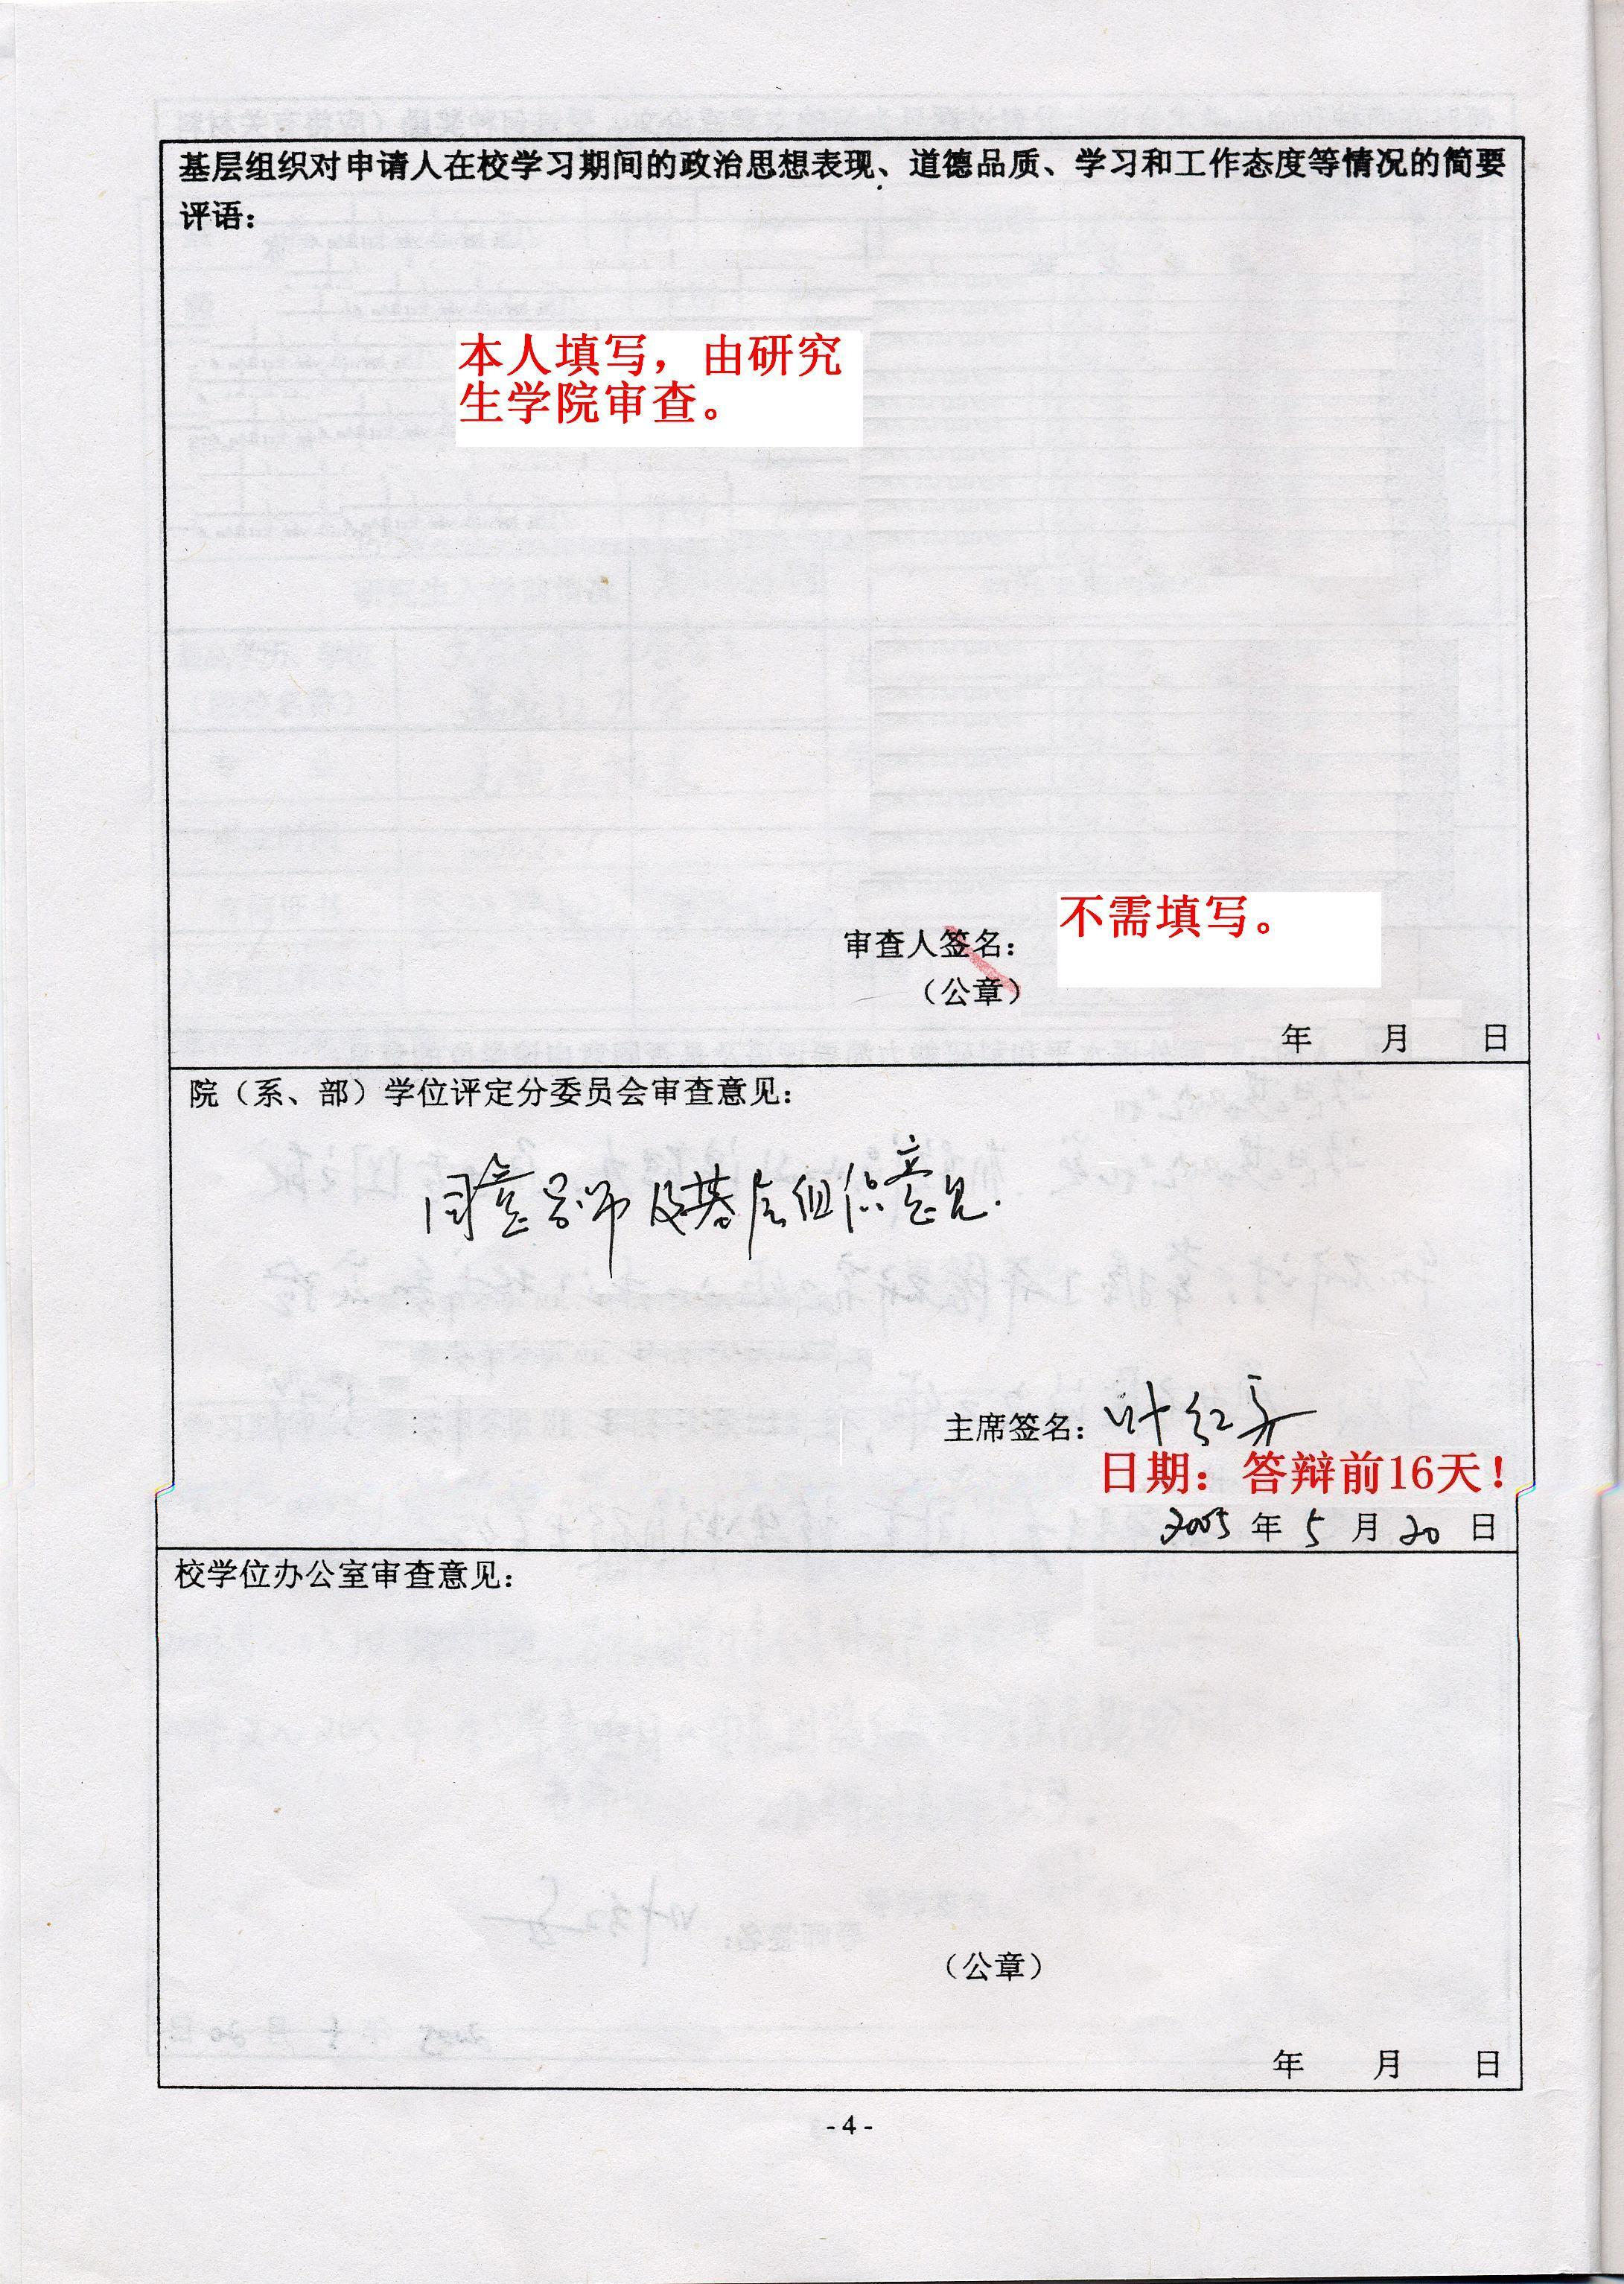 基层组织对申请人在校学习期间的政治思想表现、道德品质、学习和工作态度等情况的简要
评语：
本人填写，由研究
生学院审查。
不需填写。
审查人签名：
（公章）
年 月 日
院（系、部）学位评定分委员会审查意见：
同意导师及基层组织意见.
主席签名：叶红
日期：答辩前16天！
2005 年 5 月 20 日
校学位办公室审查意见：
（公章）
年 月 日
- 4 -